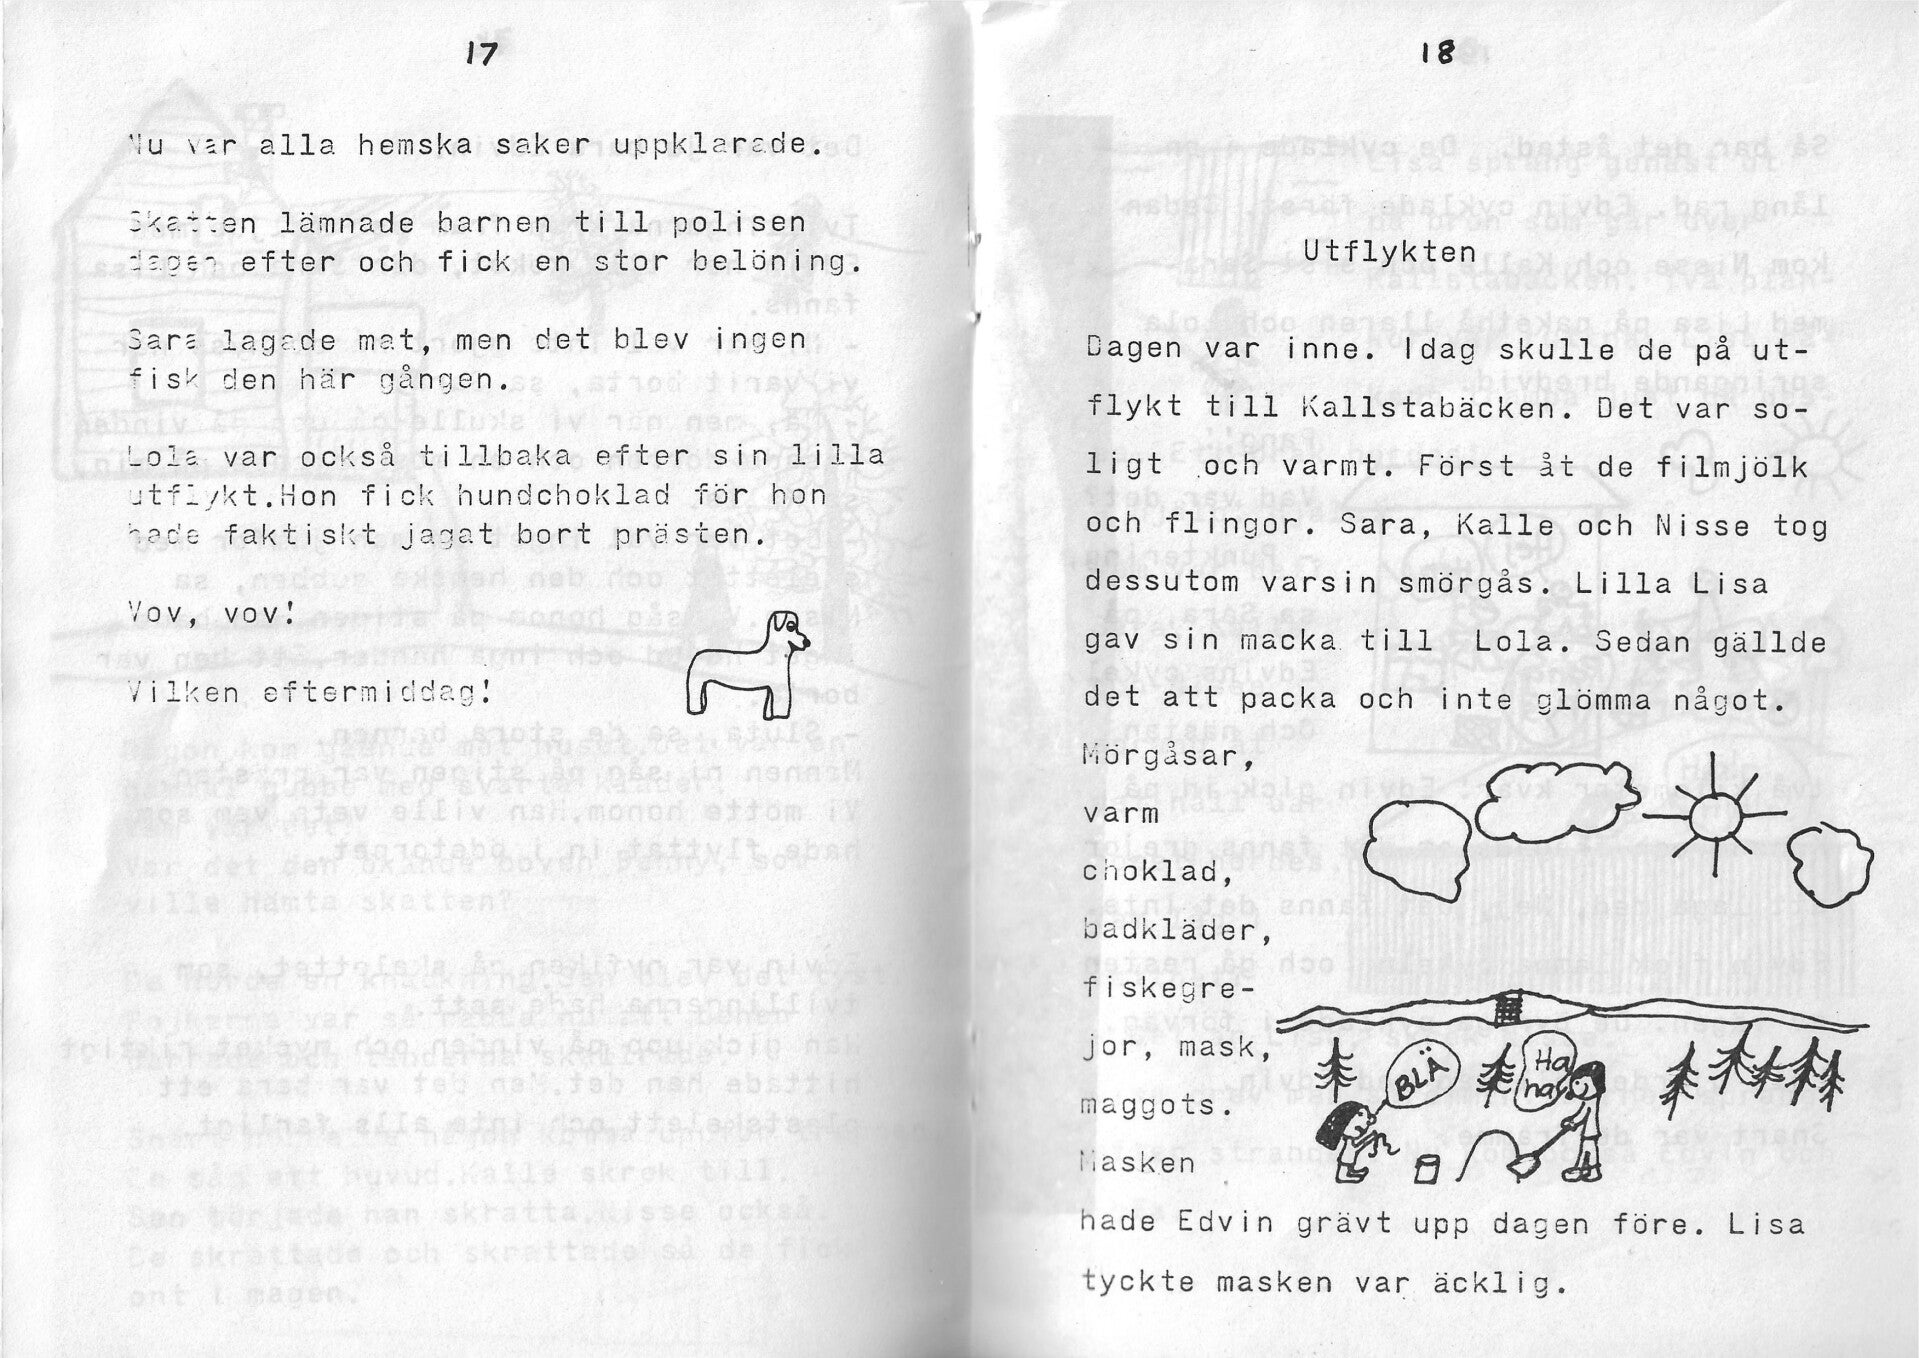 17
Nu var alla hemska saker uppklarade.
Skatten lämnade barnen till polisen
dagen efter och fick en stor belöning.
Sara lagade mat, men det blev ingen
fisk den här gången.
Lola var också tillbaka efter sin lilla
utflykt.Hon fick hundchoklad för hon
hade faktiskt jagat bort prästen.
Vov, vov!
Vilken eftermiddag!
18
Utflykten
Dagen var inne. Idag skulle de på ut-
flykt till Kallstabäcken. Det var so-
ligt och varmt. Först åt de filmjölk
och flingor. Sara, Kalle och Nisse tog
dessutom varsin smörgås. Lilla Lisa
gav sin macka till Lola. Sedan gällde
det att packa och inte glömma något.
Mörgåsar,
varm
choklad,
badkläder,
fiskegre-
jor, mask,
maggots.
Masken
BLÄ
Ha
ha
hade Edvin grävt upp dagen före. Lisa
tyckte masken var äcklig.